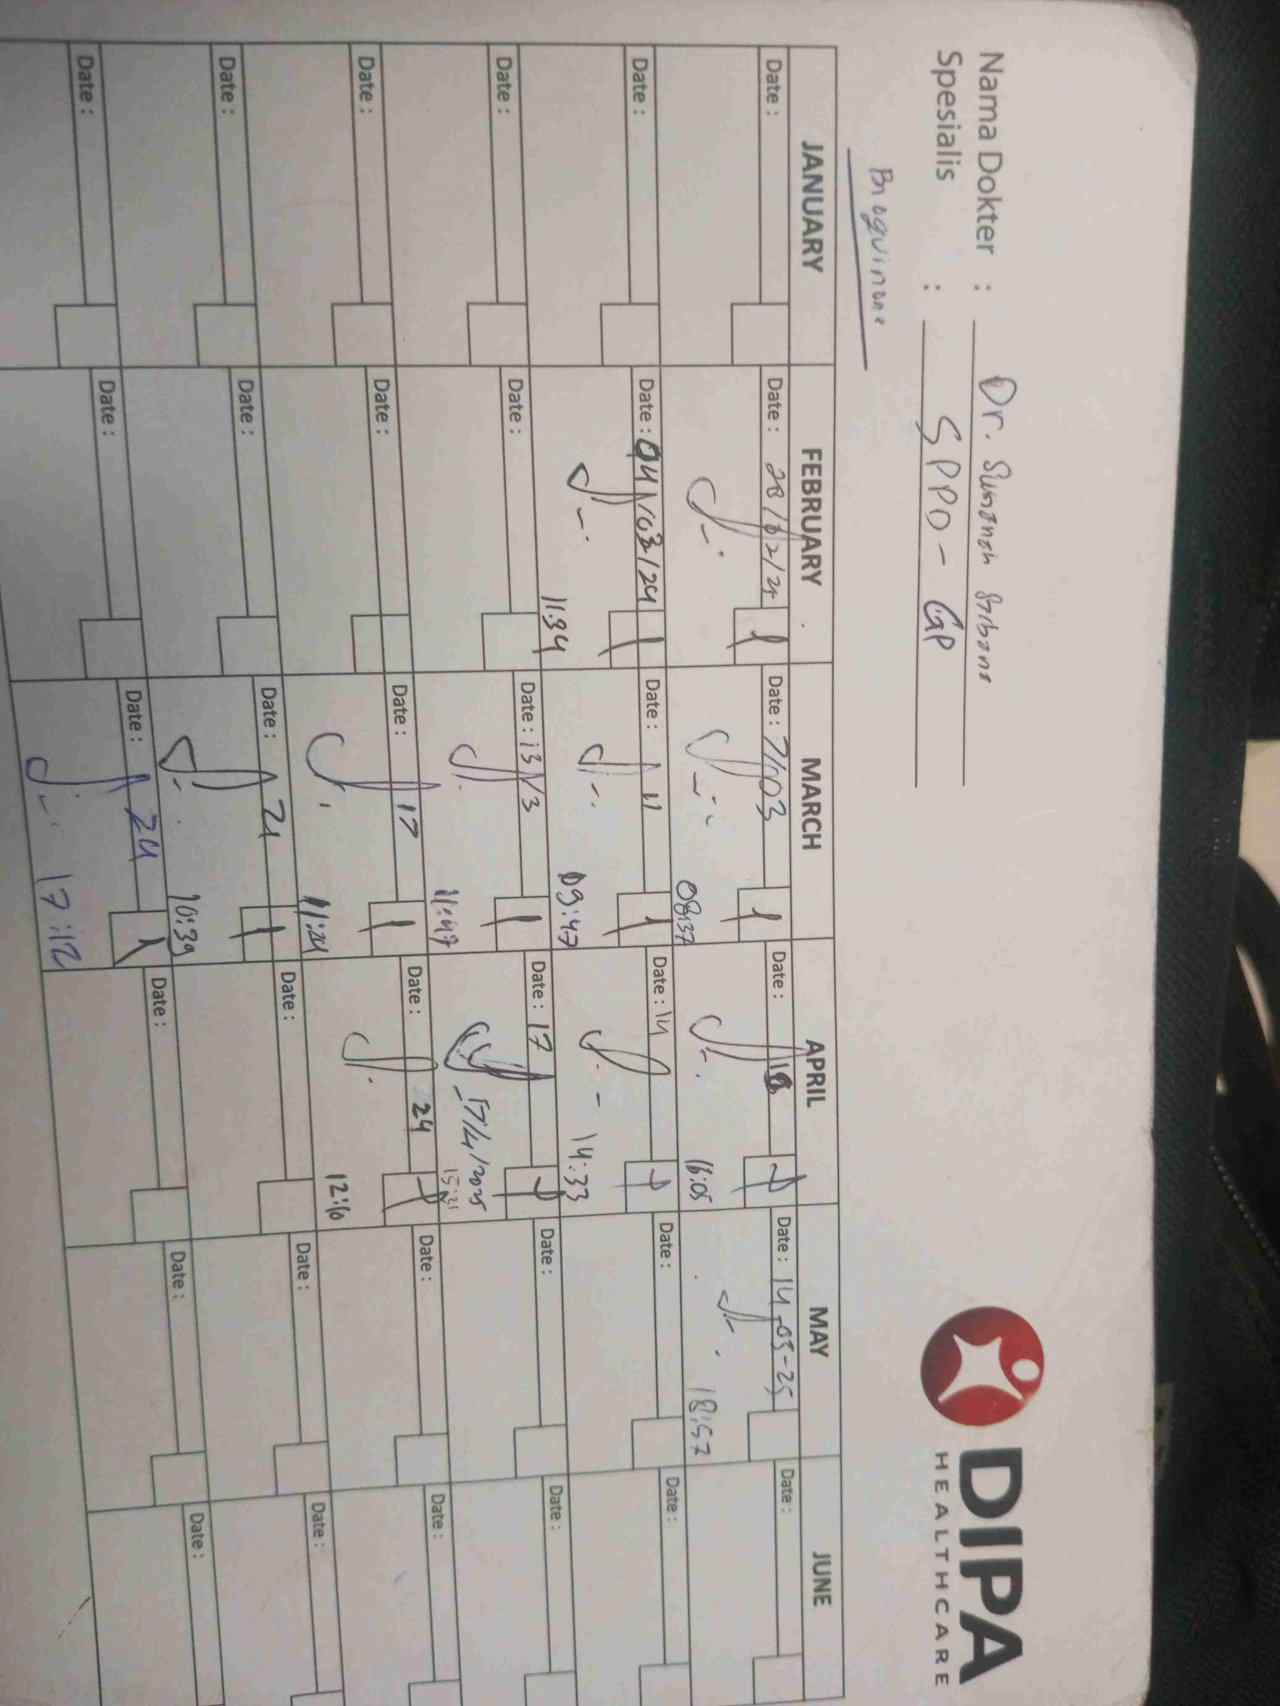 DIPA
HEALTHCARE
Nama Dokter : Dr.
Spesialis : SPPD - GP
JANUARY FEBRUARY MARCH APRIL MAY JUNE
Date : Date : 28/02/25 Date : 7/03 Date : 10 Date : 14-05-25 Date :
08:37 16:05 18:57
Date : Date : 04/03/24 Date : 11 Date : 14 Date : Date :
11:34 09:47 14:33
Date : Date : Date : 13/3 Date : 17 Date : Date :
11:47 17/4/2025 15:21
Date : Date : Date : 17 Date : 24 Date : Date :
11:24 12:10
Date : Date : Date : 21 Date : Date : Date :
10:39
Date : Date : Date : 24 Date : Date : Date :
17:12